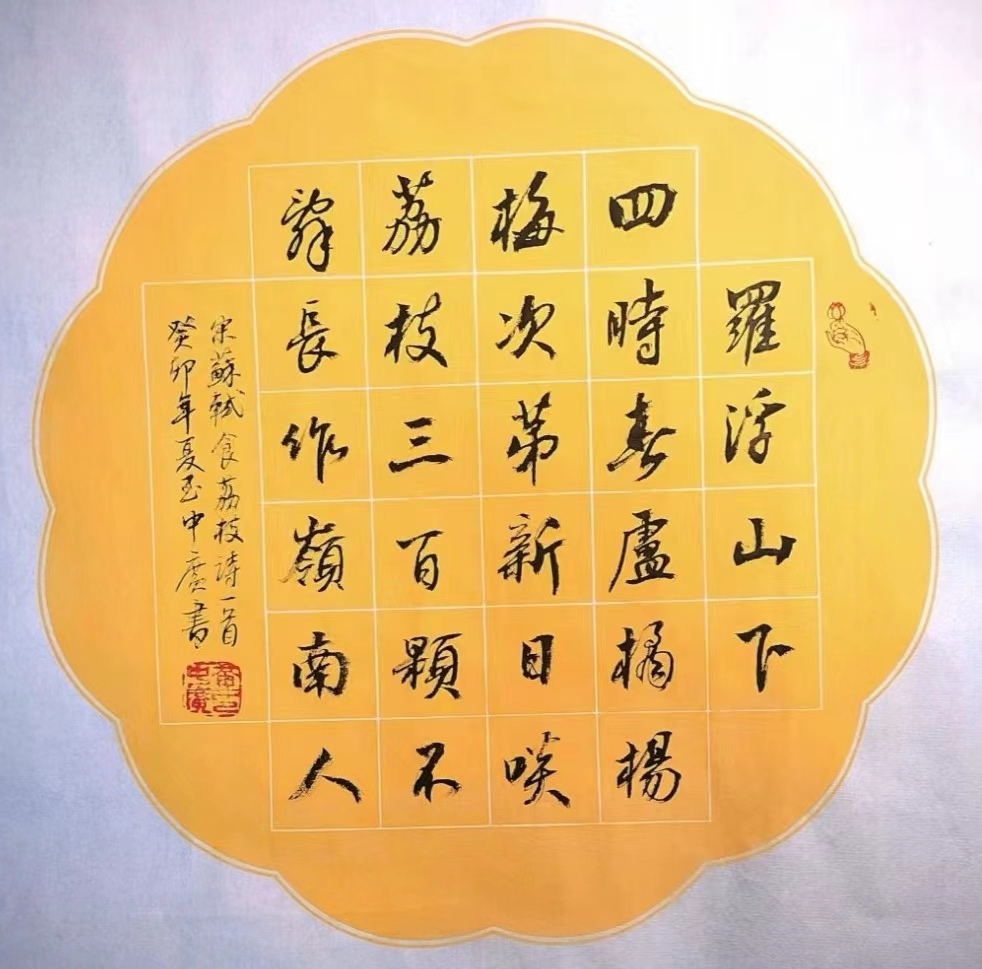 羅浮山下
四時春盧橘楊
梅次第新日啖
荔枝三百顆不
辭長作嶺南人
宋蘇軾食荔枝詩一首
癸卯年夏至中廣書